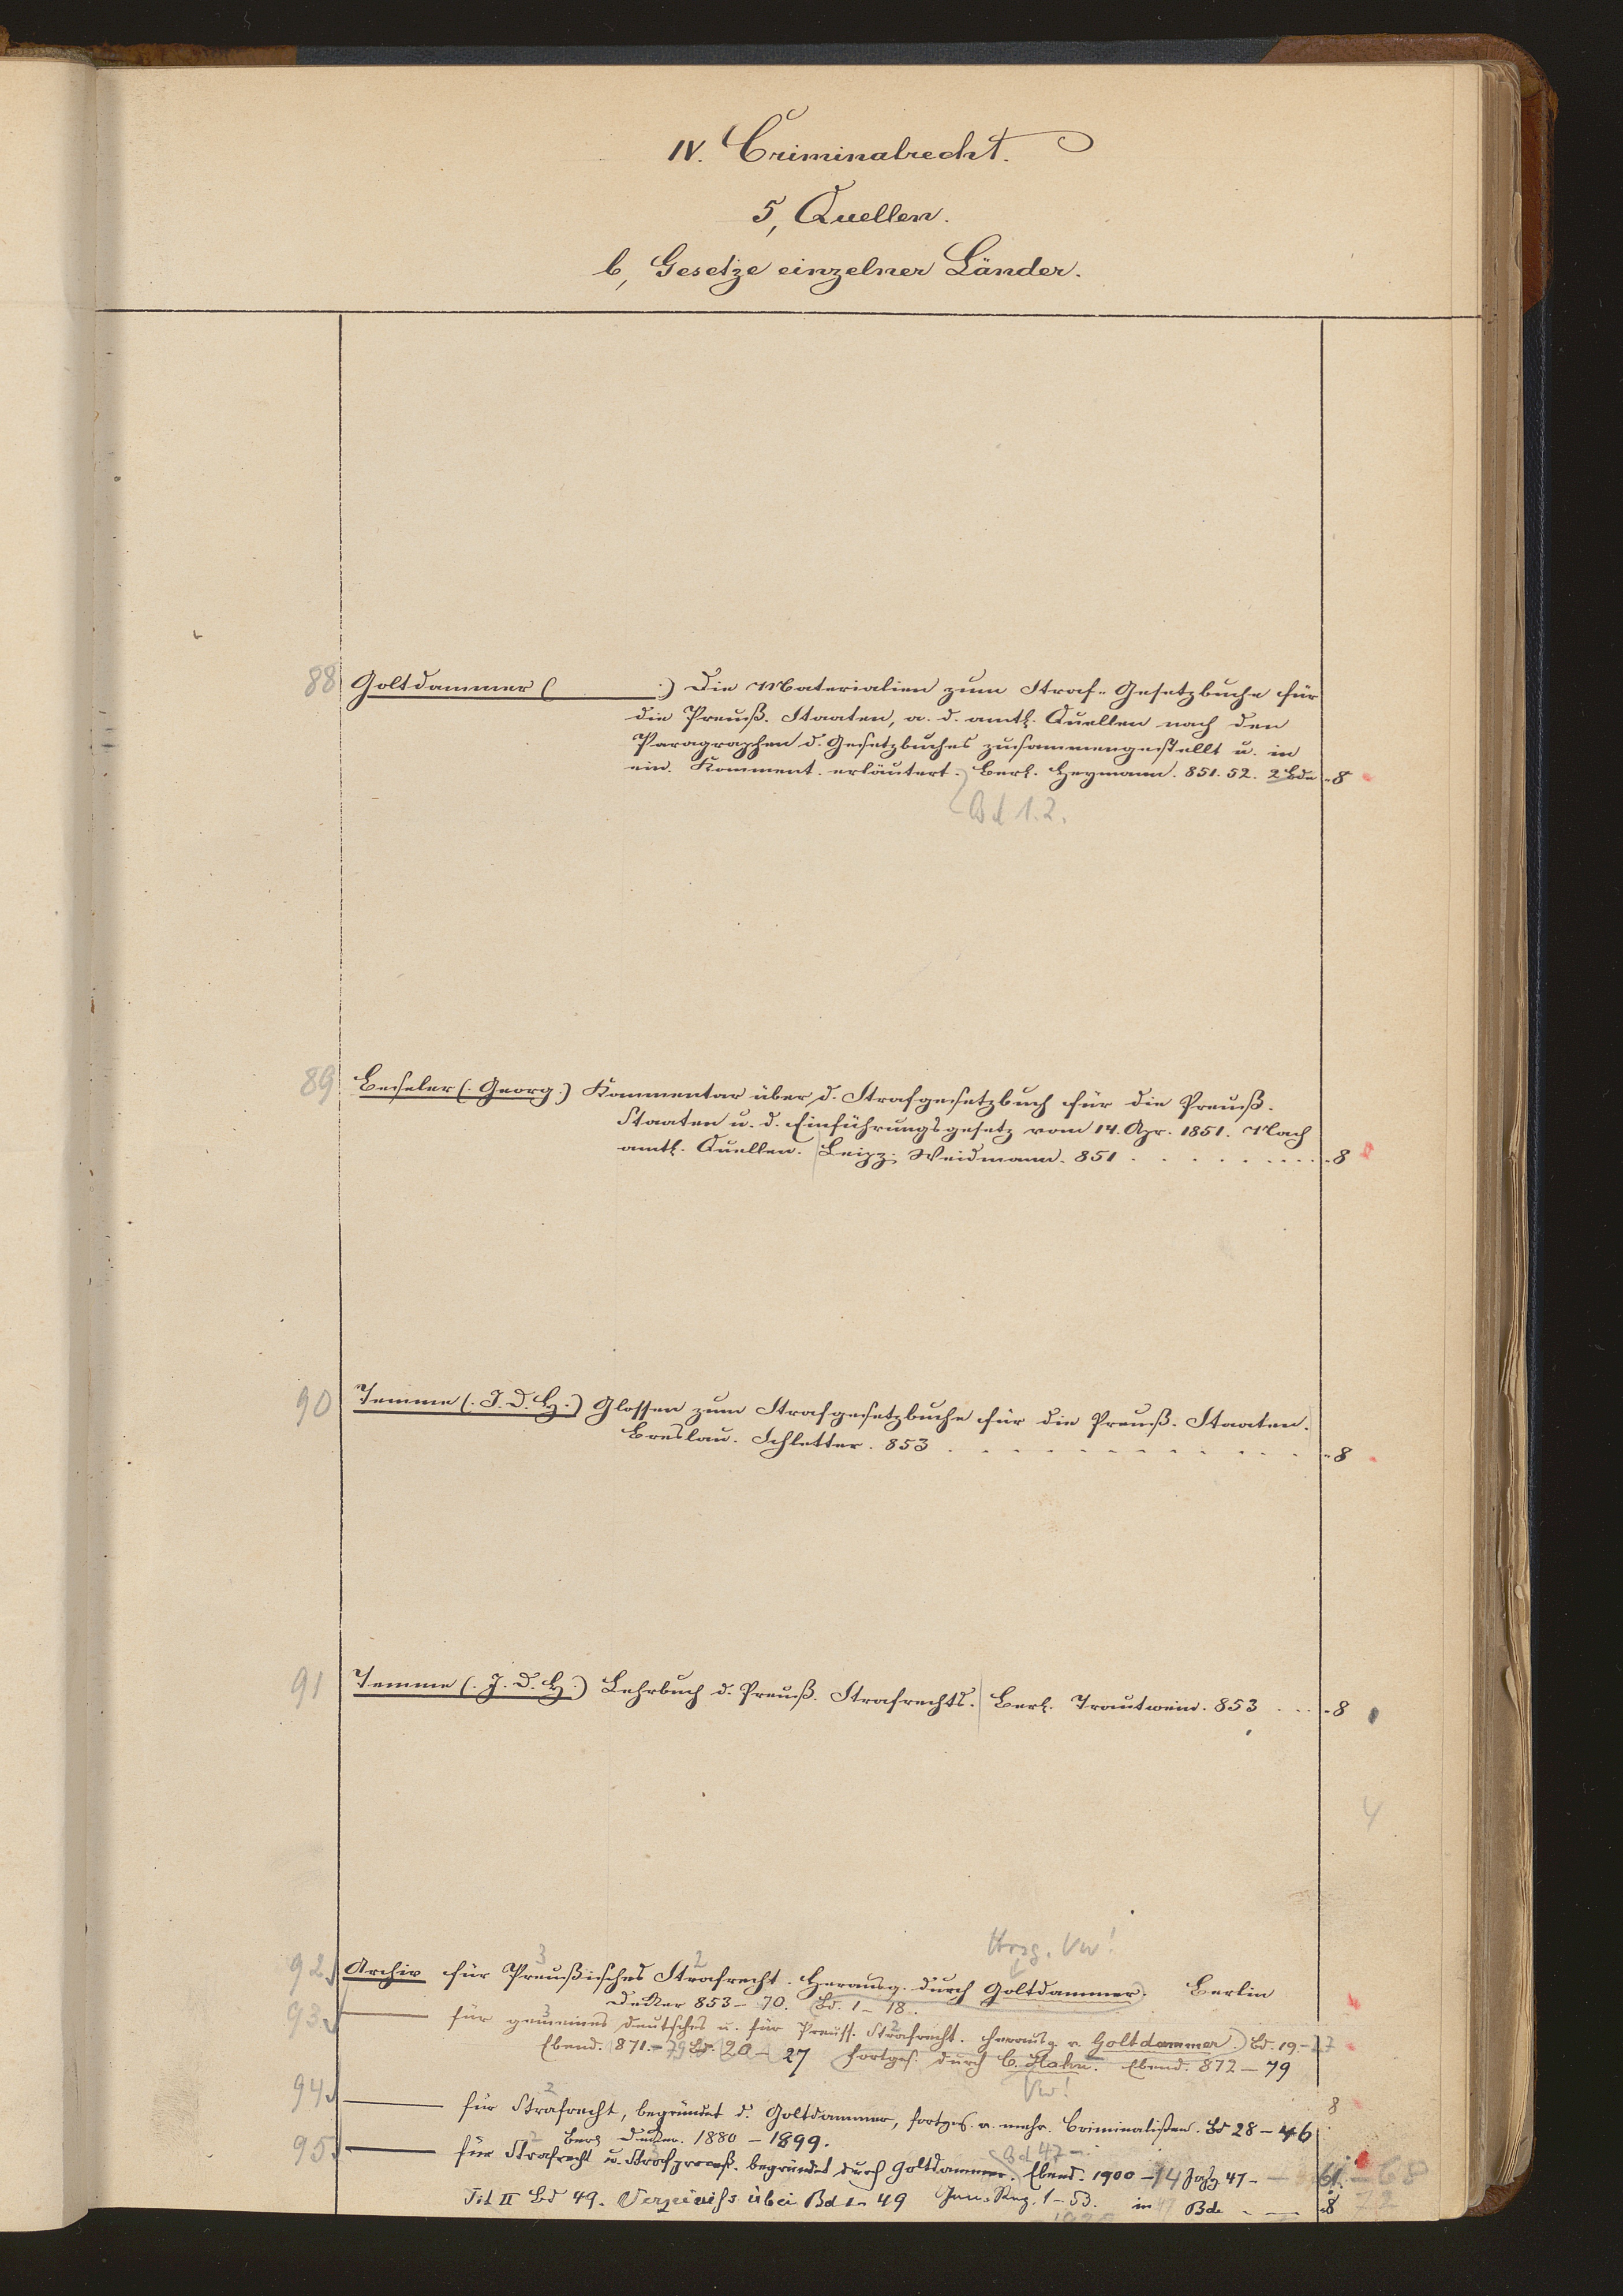 IV. Criminalrecht.
5, Quellen.
b, Gesetze einzelner Länder.
88 Goltdammer (         .) Die Materialien zum Straf-Gesetzbuche für
die Preuß. Staaten, a. d. amtl. Quellen nach den
Paragraphen d. Gesetzbuches zusammengestellt u. in
ein. Komment. erläutert. Berl. Heymann. 851. 52. 2 Bde -8
Bd 1. 2.
89 Beseler (. Georg.) Kommentar über d. Strafgesetzbuch für die Preuß.
Staaten u. d. Einführungsgesetz vom 14. Apr. 1851. Nach
amtl. Quellen. Leipz. Weidmann. 851 . . . . . . . . -8
90 Temme (. J. D. H.) Glossen zum Strafgesetzbuche für die Preuß. Staaten.
Breslau. Schletter. 853 . . . . . . . . . . . -8
91 Temme (. J. D. H.) Lehrbuch d. Preuß. Strafrechts. Berl. Trautwein. 853 . . . -8
4
Hrsg. Vw!
3 2
92. Archiv für Preußisches Strafrecht. Herausg. durch Goltdammer. Berlin
Decker 853 – 70. Bd. 1 – 18.
93. — für gemeines deutsches u. für Preuss. Strafrecht. Herausg. v. Goltdammer. Bd. 19.-27
Ebend. 871.-79 Bd. 20 – 27 fortges. durch C. Hahn. Ebend. 872 – 79
Vw!
94. — für Strafrecht, begründet d. Goltdammer, fortges. v. mehr. Criminalisten. Bd 28 – 46 8
Berl Decker. 1880 – 1899.
Bd 47 –
95. — für Strafrecht u. Strafproceß. begründet durch Goltdammer. Ebend. 1900 – 14 Jahrg 47 – 61. – 68
Tit II Bd 49. Verzeichß über Bd 1 – 49 1 – 53. in 47 Bde - — -8 72